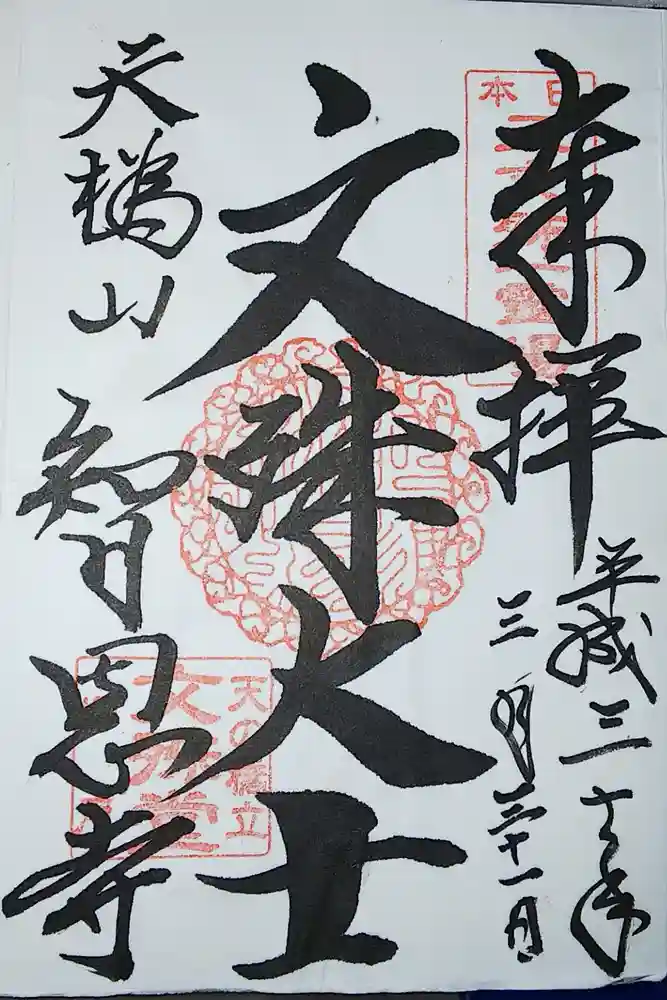 奉拝
平成三十年
三月三十一日
文殊大士
天橋山
智恩寺
日本
天の橋立
文殊堂